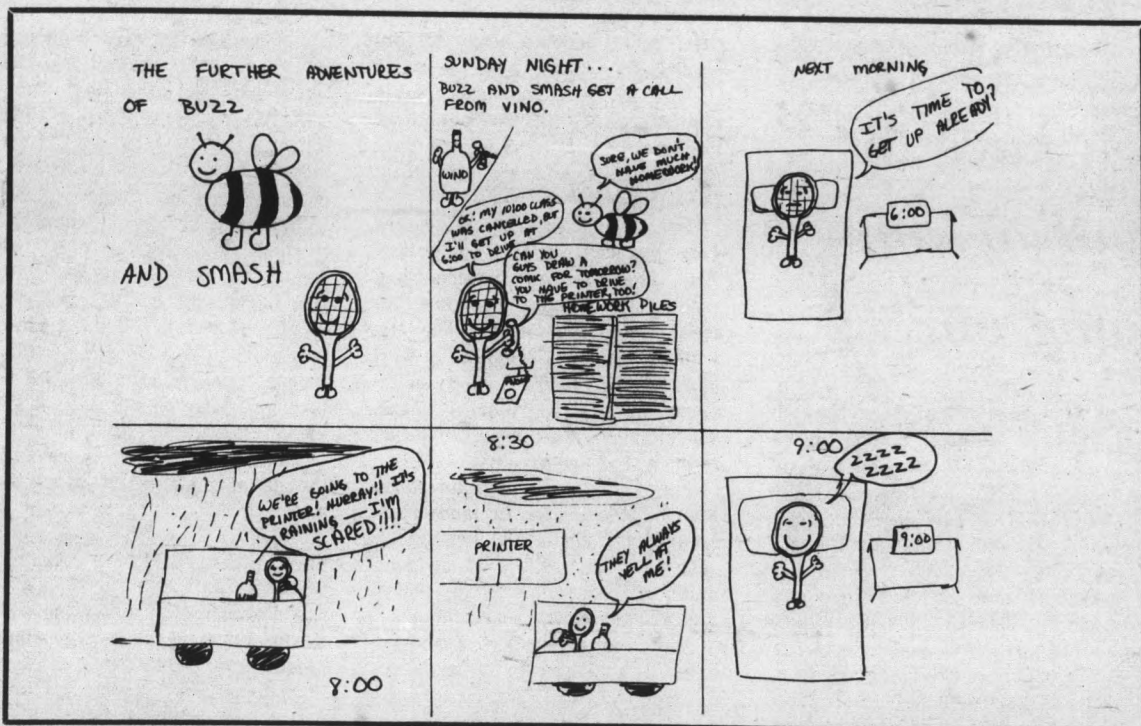 THE FURTHER ADVENTURES
OF BUZZ
AND SMASH
SUNDAY NIGHT...
BUZZ AND SMASH GET A CALL
FROM VINO.
VINO
SURE, WE DON'T
HAVE MUCH
HOMEWORK!
OK! MY 10:00 CLASS
WAS CANCELLED, BUT
I'LL GET UP AT
6:00 TO DRIVE
CAN YOU
GUYS DRAW A
COMIC FOR TOMORROW?
YOU HAVE TO DRIVE
TO THE PRINTER, TOO!
HOMEWORK PILES
NEXT MORNING
IT'S TIME TO
GET UP ALREADY?
6:00
WE'RE GOING TO THE
PRINTER! HURRAY!! IT'S
RAINING — I'M
SCARED!!!!
8:00
8:30
PRINTER
THEY ALWAYS
YELL AT
ME!
9:00
ZZZZ
ZZZZ
9:00